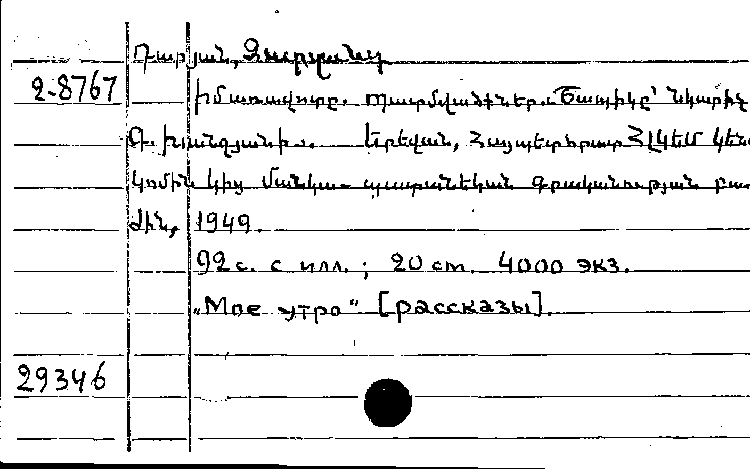 Դարյան, Զարզանդ
2-8767 Իմ առավոտը. Պատմվածքներ. Շապիկը՝ նկարիչ
Երևան, Հայպետհրատ ՀԼԿԵՄ կեն
կոմին կից մանկա-պատանեկան գրականության բա
ժին, 1949.
92 с. с илл.; 20 cm. 4000 экз.
"Мое утро" [рассказы].
29346